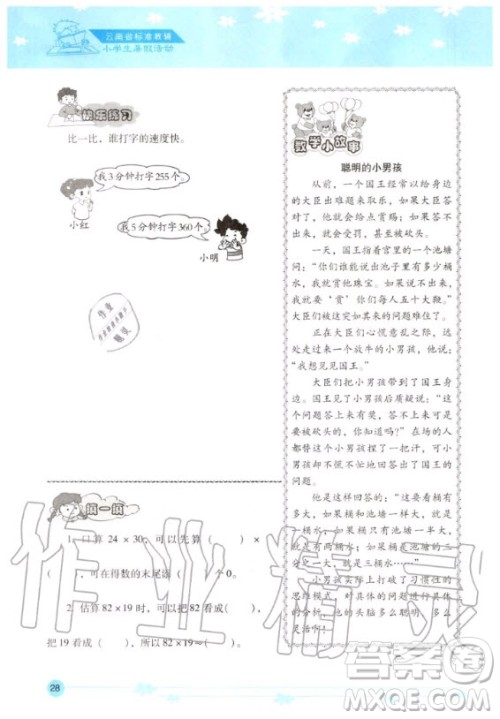 云南省标准教辅
小学生暑假活动
快乐练习
比一比，谁打字的速度快。
我3分钟打字255个。
小红
我5分钟打字360个。
小明
作业
精灵
填一填
1. 口算24×30，可以先算（　　）×
（　　），可在得数的末尾添（　　）个0。
2. 估算82×19时，可以把82看成（　　），
把19看成（　　），所以82×19≈（　　）。
28
数学小故事
聪明的小男孩
从前，一个国王经常以给身边
的大臣出难题来取乐，如果大臣答
对了，他就会给点赏赐；如果答不
出来，就会受罚，甚至被砍头。
一天，国王指着宫里的一个池塘
问：“你们谁能说出池子里有多少桶
水，我就赏他珠宝。如果说不出来，
我就要‘赏’你们每人五十大鞭。”
大臣们被这突如其来的问题难住了。
正在大臣们心慌意乱之际，走
来一个放牛的小男孩，他说：
“我想见见国王。”
大臣们把小男孩带到了国王身
边。国王见了小男孩后质疑说：“这
个问题答上来有奖，答不上来可是
要砍头的，你知道吗？”在场的人
都替这个小男孩捏了一把汗，可这
个小男孩不慌不忙地回答出国王的
问题。
他是这样回答的：“如果桶有
池塘那么大，那就是一桶水；如果
桶只有池塘一半大，就是两桶水；
如果桶只有池塘三分之一大，就是
三桶水……”
小男孩之所以打破了习惯性的
思维模式，对具体的问题进行具体
的分析，他的头脑多么聪明，多么
灵活啊！
作业精灵
答案圈
MXQE.COM